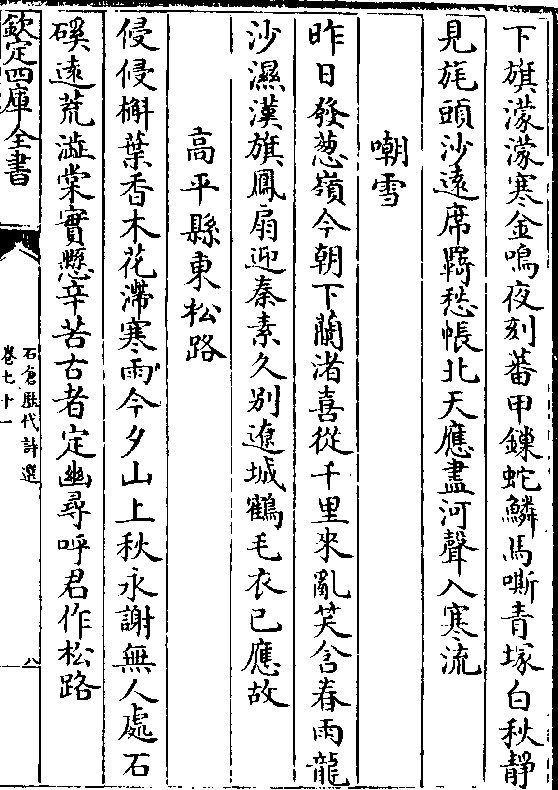 下旗濛濛寒金鳴夜刻蕃甲鏁蛇鱗馬嘶青塚白秋靜
見旄頭沙遠席羇愁帳北天應盡河聲入寒流
嘲雪
昨日發葱嶺今朝下蘭渚喜從千里來亂笑含春雨龍
沙濕漢旗鳳扇迎秦素久別遼城鶴毛衣已應故
高平縣東松路
侵侵槲葉香木花滯寒雨今夕山上秋永謝無人處石
磎遠荒澁棠實懸辛苦古者定幽尋呼君作松路
欽定四庫全書
石倉歷代詩選
卷七十一
八